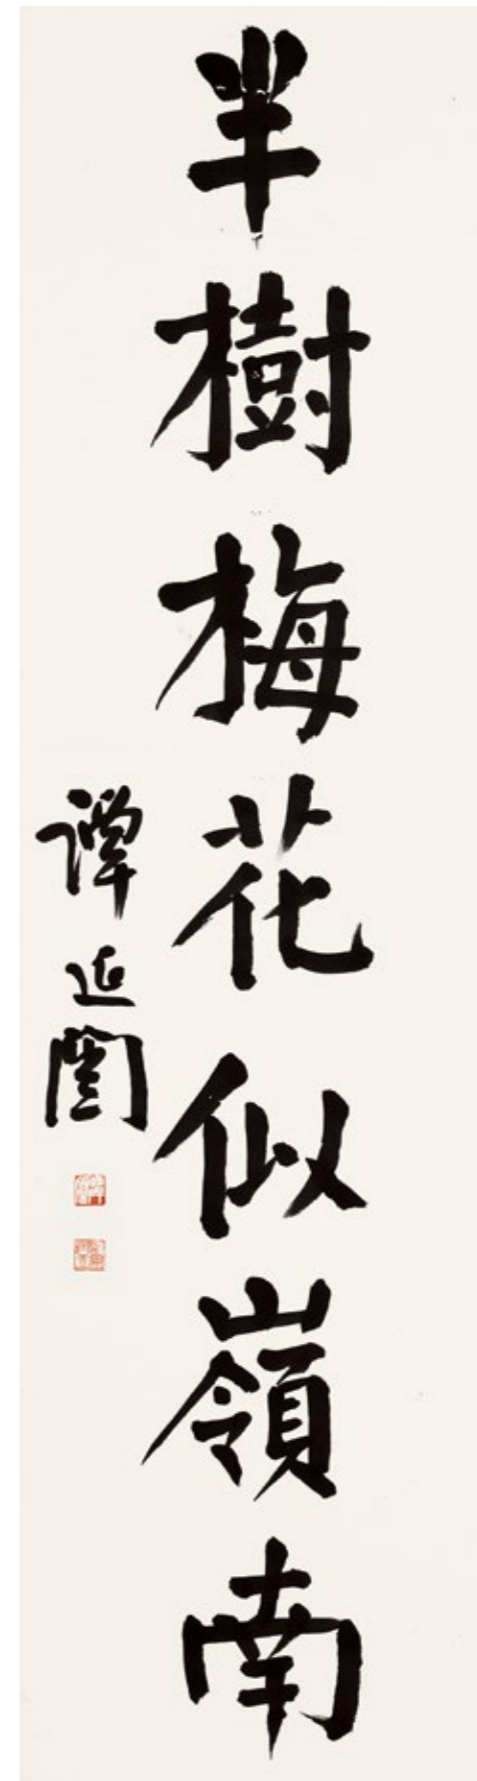 半樹梅花似嶺南
譚延闓